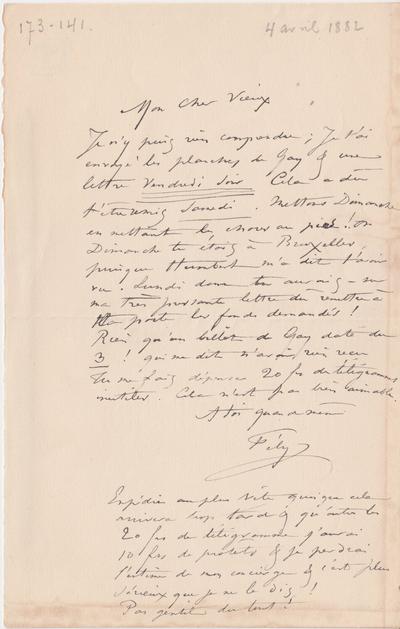 173-141.
4 avril 1882
Mon cher Vieux
Je n'y puis rien comprendre ; Je t'ai
envoyé les planches de Gay & une
lettre Vendredi soir Cela a dû
t'être remis Samedi. Mettons Dimanche
en mettant les choses au pis ! Or
Dimanche tu étais à Bruxelles,
puisque Humbert m'a dit t'avoir
vu. Lundi donc tu aurais
ma très pressante lettre du remettre à
la poste les fonds demandés !
Rien qu'un billet de Gay daté du
3 ! qui me dit n'avoir rien reçu
Tu me fais dépenser 20 fs de télégrammes
inutiles. Cela n'est pas très aimable.
A toi quand même
Fély
Expédie au plus vite quoique cela
arrivera trop tard & qu'outre les
20 fs de télégramme j'aurai
10 fs de protêts & je perdrai
l'estime de mon concierge & c'est plus
sérieux que je ne le dis !
Pas gentil du tout !